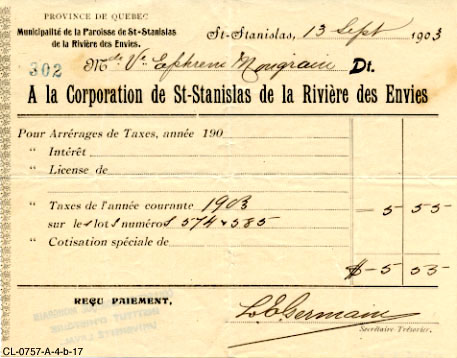 PROVINCE DE QUEBEC
Municipalité de la Paroisse de St-Stanislas
de la Rivière des Envies.
St-Stanislas, 13 Sept 1903
302
Mde Ve Ephrem Mongrain Dt.
A la Corporation de St-Stanislas de la Rivière des Envies
Pour Arrérages de Taxes, année 190
“ Intérêt
“ License de
“ Taxes de l'année courante 1903 5 55
sur les lots numéros 574 & 585
“ Cotisation spéciale de
$ 5 55
REÇU PAIEMENT,
L. E. Germain
Secrétaire-Trésorier.
CL-0757-A-4-b-17